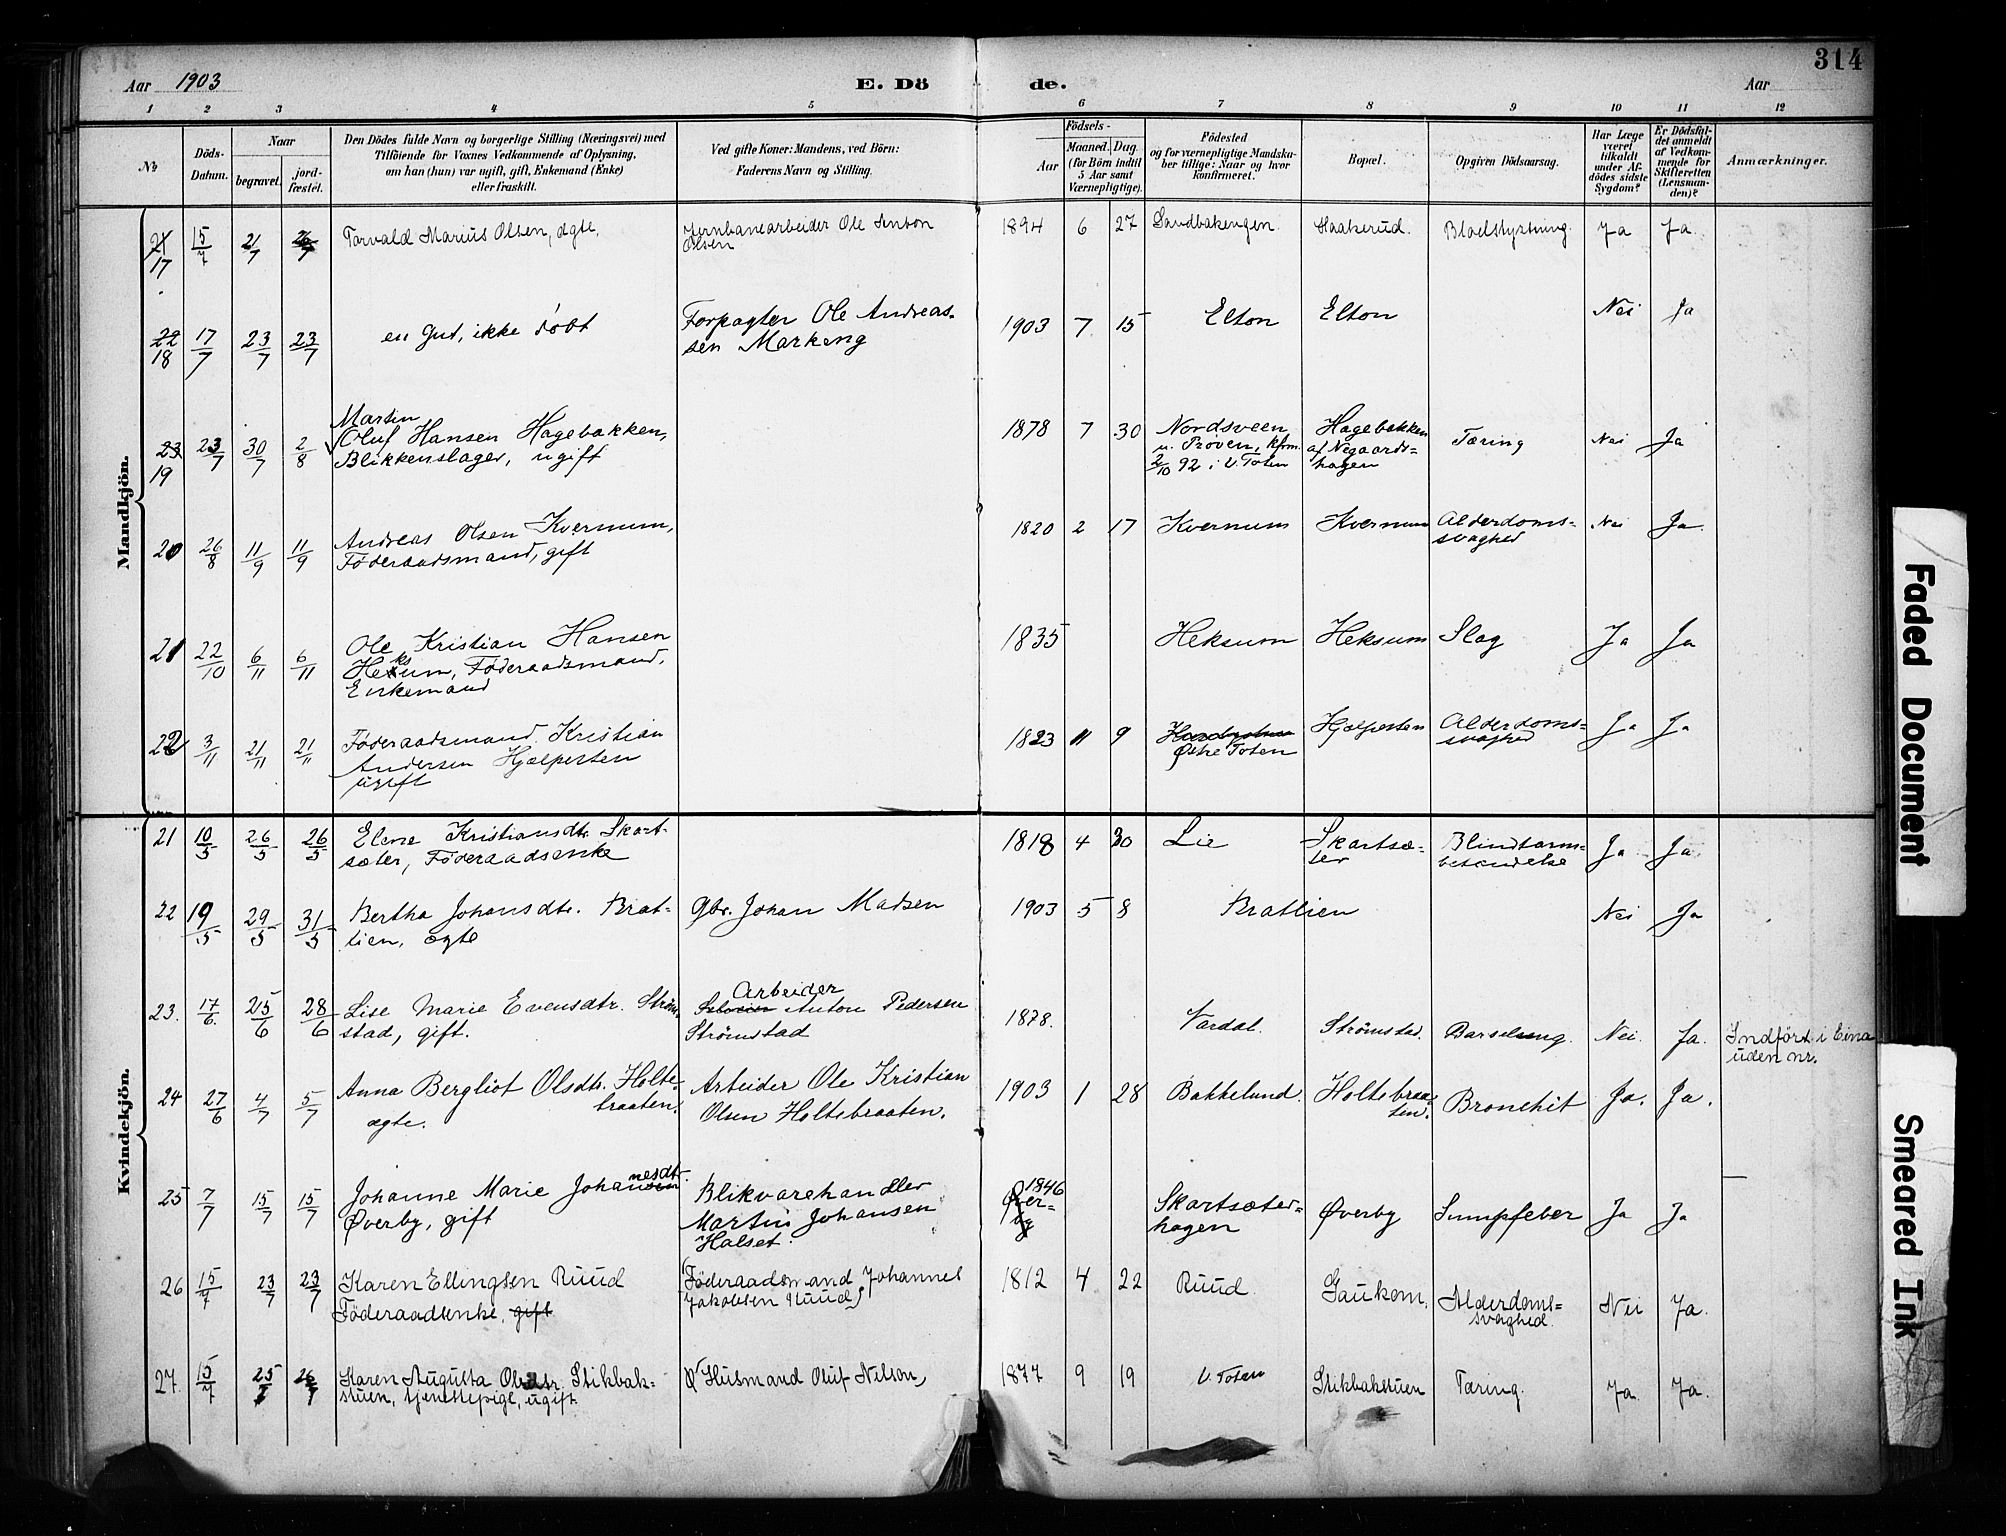 314
Aar 1903 E. Dö de. Aar
1 2 3 4 5 6 7 8 9 10 11 12
No
Döds-Datum.
Naar
begravet.
jord-fæstet.
Den Dödes fulde Navn og borgerlige Stilling (Næringsvei) med
Tilföiende for Voxnes Vedkommende af Oplysning,
om han (hun) var ugift, gift, Enkemand (Enke)
eller fraskilt.
Ved gifte Koner: Mandens, ved Börn:
Faderens Navn og Stilling.
Födsels-
Aar
Maaned. Dag.
(for Börn indtil
5 Aar samt
Værnepligtige).
Födested
og for værnepligtige Mandska-
ber tillige: Naar og hvor
konfirmeret.
Bopæl.
Opgiven Dödsaarsag.
Har Læge
været
tilkaldt
under Af-
dödes sidste
Sygdom?
Er Dödsfal-
det anmeldt
af Vedkom-
mende for
Skifteretten
(Lensman-
den)?
Anmærkninger.
Mandkjön.
21 17 15/7 21/7 26/7 Torvald Marius Olsen, ægte. Jernbanearbeider Ole Anton
Olsen 1894 6 27 Sandbakengen. Haakerud. Blodstyrtning. Ja Ja.
22 18 17/7 23/7 23/7 en Gut, ikke døbt Forpagter Ole Andreas-
sen Markeng 1903 7 15 Elton Elton Nei Ja
23 19 23/7 30/7 2/8 Martin
Oluf Hansen Hagebakken,
Blikkenslager, ugift 1878 7 30 Nordsveen
u. Prøven, kfm.
2/10 92 i V. Toten Hagebakken
af Negaards-
hagen Tæring Nei Ja
20 26/8 11/9 11/9 Andreas Olsen Kvernum,
Føderaadsmand, gift 1820 2 17 Kvernum Kvernum Alderdoms-
svaghed Nei Ja.
21 22/10 6/11 6/11 Ole Kristian Hansen
Heksum, Føderaadsmand,
Enkemand 1835 Heksum Heksum Slag Ja Ja
22 3/11 21/11 21/11 Føderaadsmand Kristian
Andersen Hjælpersten
ugift 1823 11 9 Østre Toten Hjælpersten Alderdoms-
svaghed Ja Ja
Kvindekjön.
21 10/5 26/5 26/5 Elene Kristiansdtr. Skart-
sæter, Føderaadsenke 1818 4 30 Lie Skartsæ-
ter Blindtarms-
betændelse Ja Ja
22 19/5 29/5 31/5 Bertha Johansdtr. Brat-
lien, ægte Gbr. Johan Madsen 1903 5 8 Bratlien Nei Ja
23. 17/6. 25/6 28/6 Lise Marie Evensdtr. Strøm-
stad, gift. Arbeider
Anton Pedersen
Strømstad 1878. Vardal. Strømstad. Barselseng. Nei. Ja. Indført i Eina
uden nr.
24 27/6 4/7 5/7 Anna Bergliot Olsdtr. Holte-
braaten.
ægte. Arbeider Ole Kristian
Olsen Holtebraaten. 1903 1 28 Bakkelund. Holtebraa-
ten. Bronchit Ja. Ja.
25 7/7 15/7 15/7 Johanne Marie Johannesdtr.
Øverby, gift Blikvarehandler
Martin Johansen
Halset. 1846
Øver-
by Skartsæter-
hagen Øverby Sumpfeber Ja Ja
26 15/7 23/7 23/7 Karen Ellingsen Ruud
Føderaadsenke, gift (Føderaadsmand Johannes
Jakobsen Ruud) 1812 4 22 Ruud. Gaukom. Alderdoms-
svaghed. Nei Ja.
27. 15/7 25/7 26/7 Karen Augusta Olsdtr. Stikbak-
stuen, tjenestepige, ugift. Husmand Oluf Nilsen, 1877 9 19 V. Toten Stikbakstuen Tæring. Ja. Ja.
Faded Document
Smeared Ink